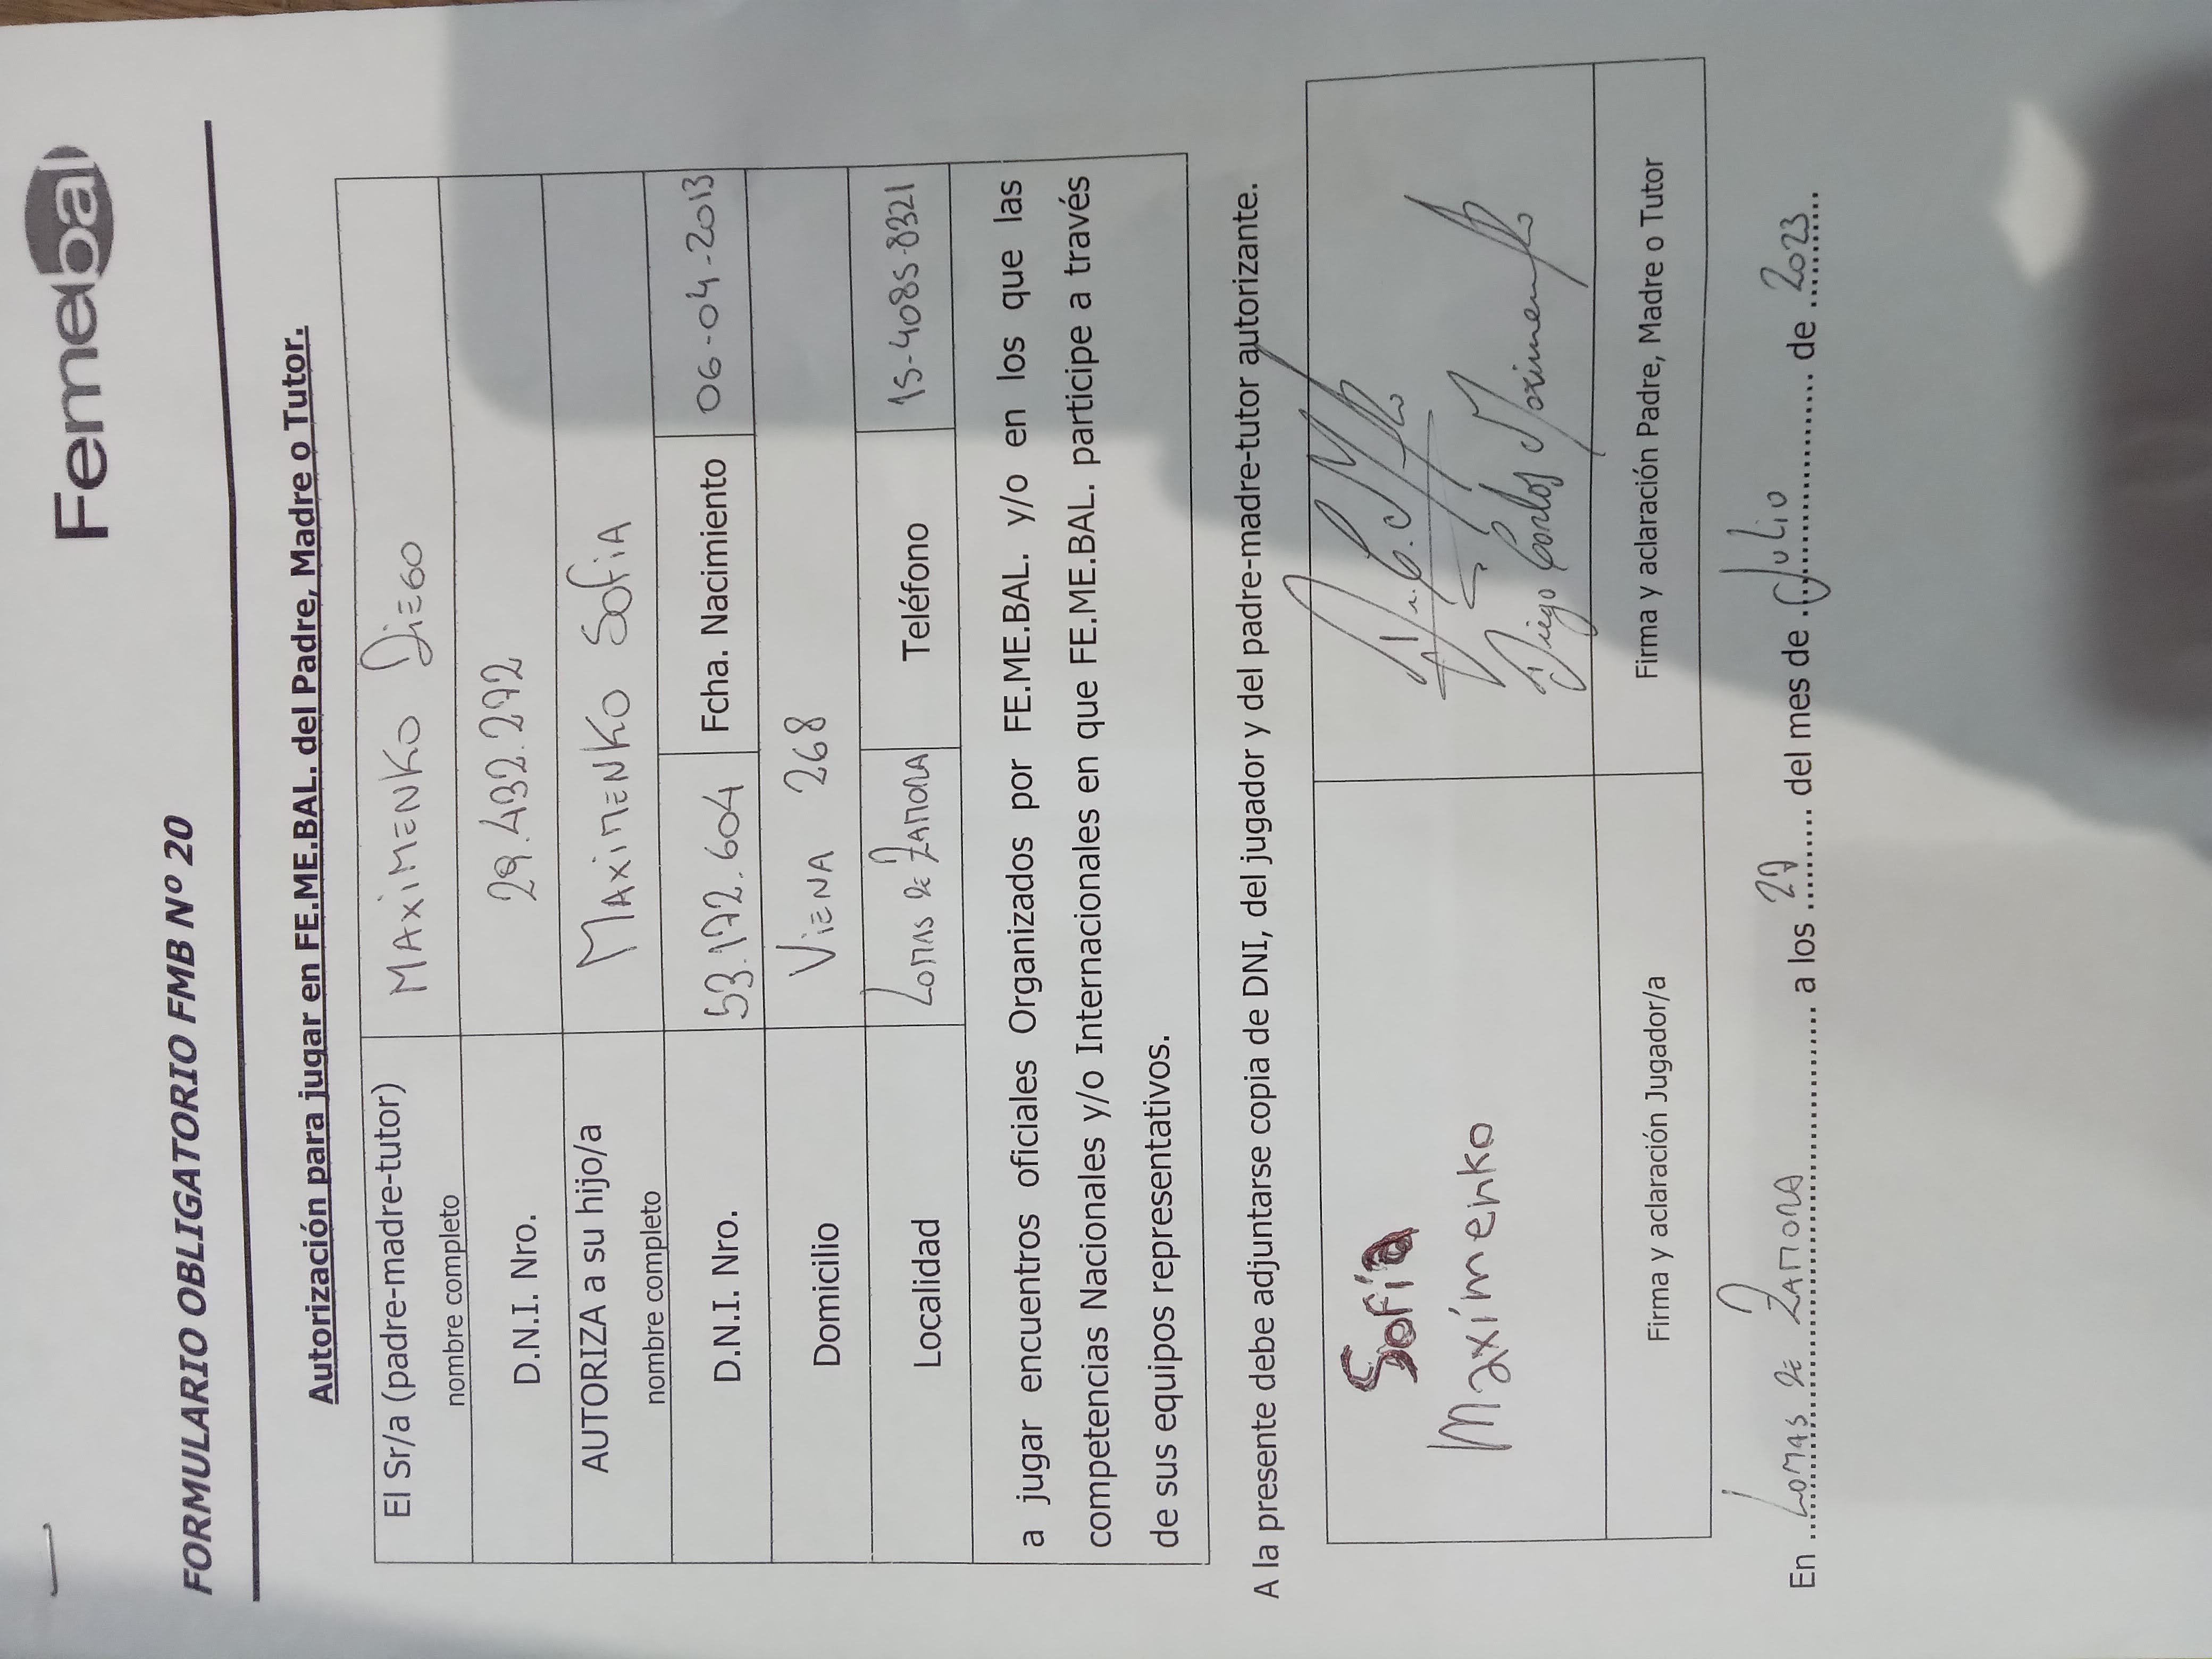 Femebal
FORMULARIO OBLIGATORIO FMB Nº 20
Autorización para jugar en FE.ME.BAL. del Padre, Madre o Tutor.
El Sr/a (padre-madre-tutor) nombre completo MAXIMENKO DIEGO
D.N.I. Nro. 29.432.272
AUTORIZA a su hijo/a nombre completo MAXIMENKO SOFIA
D.N.I. Nro. 53.172.604 Fcha. Nacimiento 06-04-2013
Domicilio VIENA 268
Localidad LOMAS DE ZAMORA Teléfono 15-4085-8321
a jugar encuentros oficiales Organizados por FE.ME.BAL. y/o en los que las
competencias Nacionales y/o Internacionales en que FE.ME.BAL. participe a través
de sus equipos representativos.
A la presente debe adjuntarse copia de DNI, del jugador y del padre-madre-tutor autorizante.
Sofía
Maximenko
Diego Carlos Maximenko
Firma y aclaración Jugador/a Firma y aclaración Padre, Madre o Tutor
En LOMAS DE ZAMORA a los 27 del mes de Julio de 2023